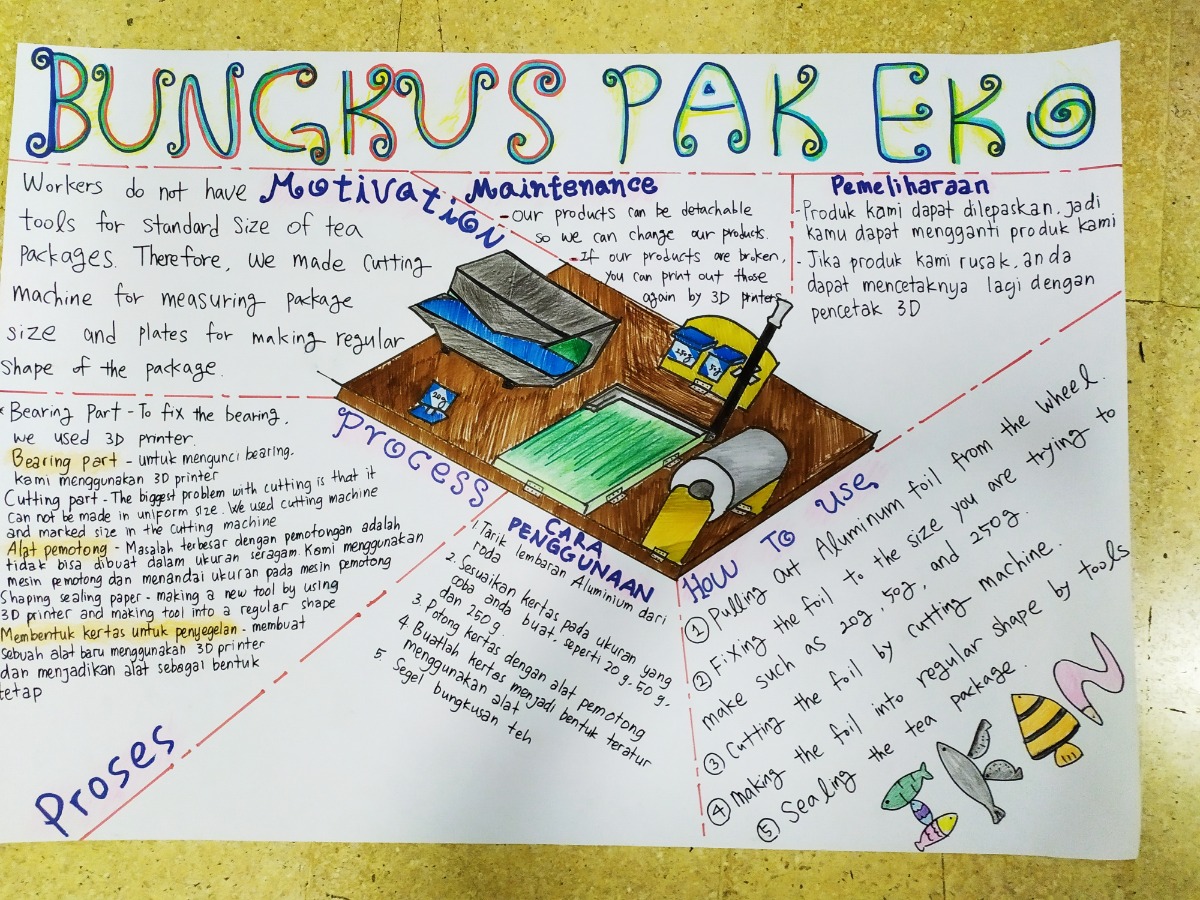 BUNGKUS PAK EKO
Motivation
Workers do not have
tools for standard size of tea
packages. Therefore, we made cutting
machine for measuring package
size and plates for making regular
shape of the package.
Maintenance
- Our products can be detachable
so we can change our products.
- If our products are broken,
you can print out those
again by 3D printers
Pemeliharaan
- Produk kami dapat dilepaskan, jadi
kamu dapat mengganti produk kami
- Jika produk kami rusak, anda
dapat mencetaknya lagi dengan
pencetak 3D
250g
50g
20g
Process
* Bearing Part - To fix the bearing,
we used 3D printer.
Bearing part - untuk mengunci bearing.
kami menggunakan 3D printer
Cutting part - The biggest problem with cutting is that it
can not be made in uniform size. We used cutting machine
and marked size in the cutting machine
Alat pemotong - Masalah terbesar dengan pemotongan adalah
tidak bisa dibuat dalam ukuran seragam. Kami menggunakan
mesin pemotong dan menandai ukuran pada mesin pemotong
Shaping sealing paper - making a new tool by using
3D printer and making tool into a regular shape
Membentuk kertas untuk penyegelan - membuat
sebuah alat baru menggunakan 3D printer
dan menjadikan alat sebagai bentuk
tetap
Proses
CARA
PENGGUNAAN
1. Tarik lembaran Aluminium dari
roda
2. Sesuaikan kertas pada ukuran yang
coba anda buat, seperti 20g. 50g.
dan 250g.
3. Potong kertas dengan alat pemotong
4. Buatlah kertas menjadi bentuk teratur
menggunakan alat
5. Segel bungkusan teh
How To Use
① Pulling out Aluminum foil from the wheel.
② Fixing the foil to the size you are trying to
make such as 20g, 50g, and 250g.
③ Cutting the foil by cutting machine.
④ making the foil into regular shape by tools
⑤ Sealing the tea package.